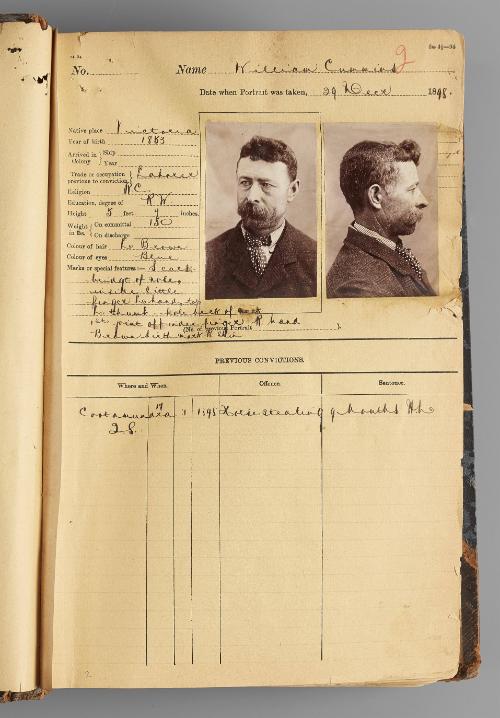 No. Name William Cummins 2
Date when Portrait was taken, 29 Decr 1898.
Native place Victoria
Year of birth 1853
Arrived in Colony Ship
Year
Trade or occupation previous to conviction Laborer
Religion R.C.
Education, degree of R W
Height 5 feet 7 inches.
Weight in lbs. On committal 150
On discharge
Colour of hair Brown
Colour of eyes Blue
Marks or special features Scar
bridge of nose,
inside little
finger hand, top
thumb back of
1st joint off index finger R hand
Brown birth mark
(No. of previous Portrait )
PREVIOUS CONVICTIONS.
Where and When. Offence. Sentence.
Cootamundra 17 1 1895 Horse stealing 9 Months H L
Q.S.
2